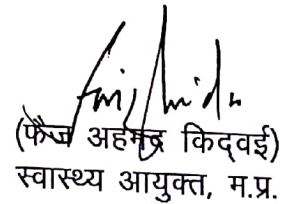 (फैज अहमद किदवई)
स्वास्थ्य आयुक्त, म.प्र.